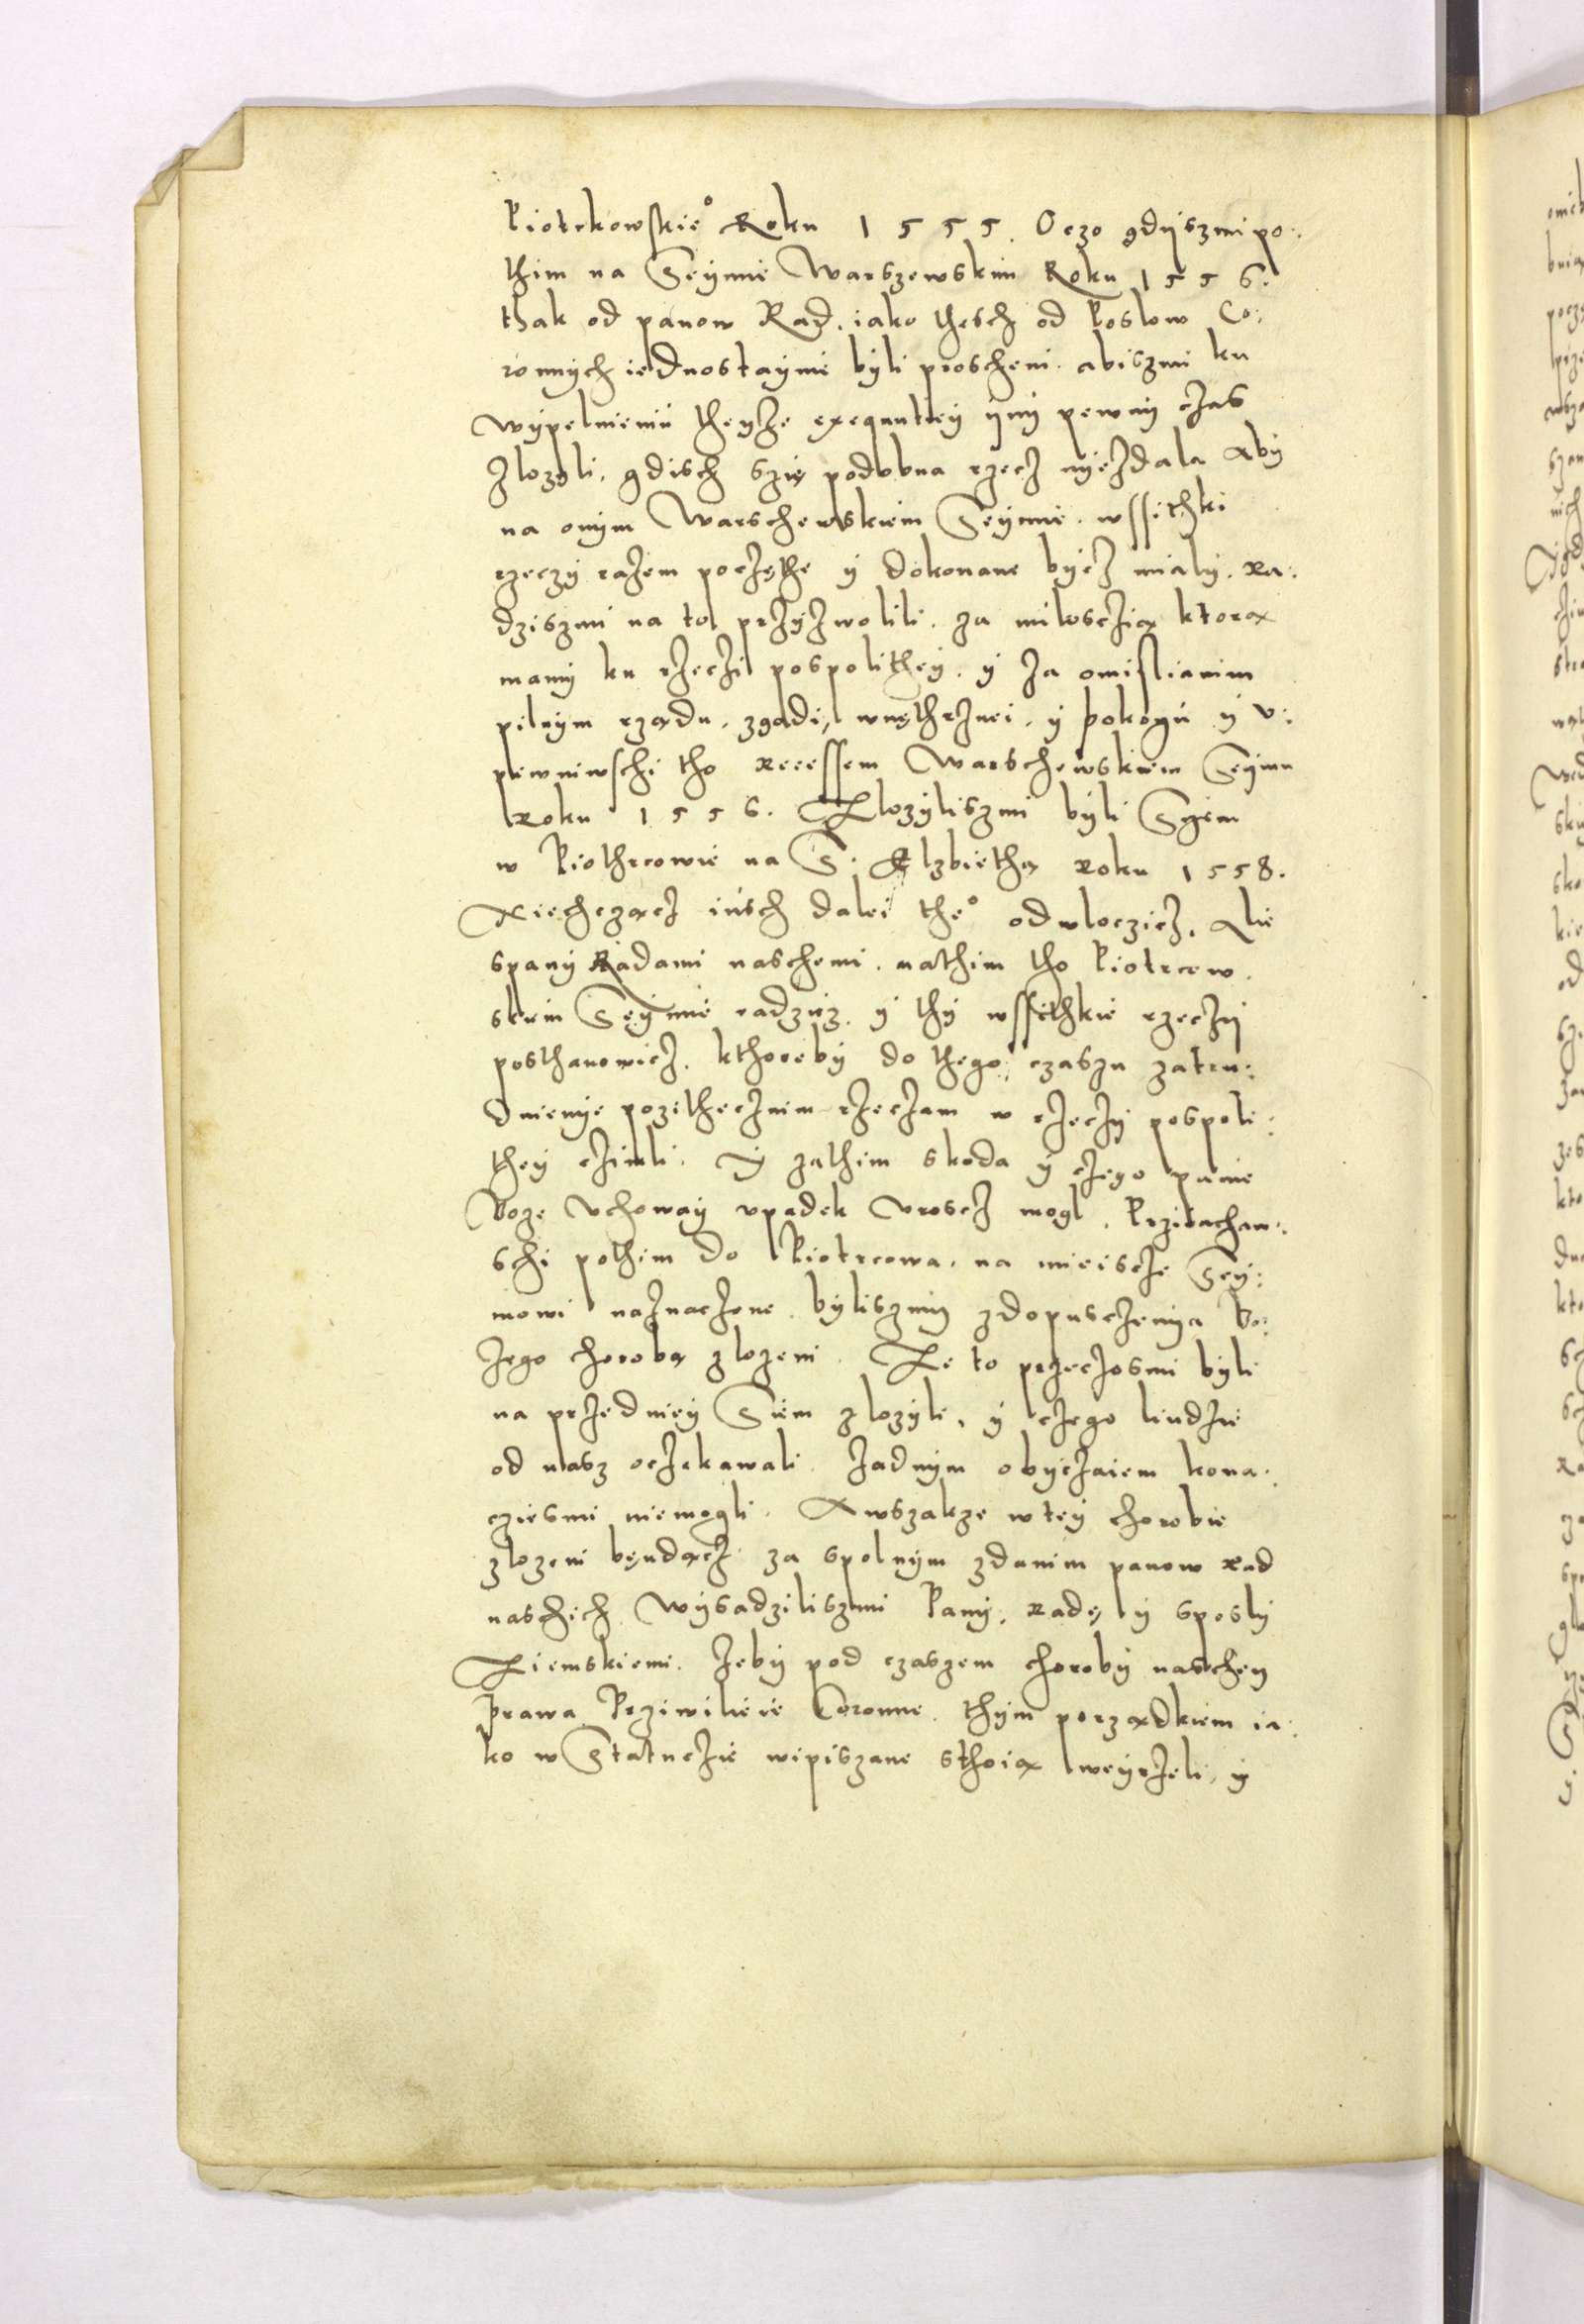 Piotrkowskie° Roku 1555. Oczo gdyszmi po:
thim na Seymie Warszewskim Roku 1556.
thak od panow Rad. iako thesch od Poslow Co:
ronnych iednostaymie byli proscheni. abiszmi ku
wypelnieniu theyze exequutiey ijny pewny czas
zlozyli, gdisch szię podobna rzecz nyezdala Aby
na onym Warschewskiem Seymie. wssithki
rzeczy razem poczęthe y dokonane bycz mialy. Ra:
dziszmi na to przyzwolili. za milosczią ktorą
mamy ku rzeczi pospolithey. y za omislianim
pilnym rządu. zgodi, wnęthrznei. y pokoyu y v:
pewniwschi tho Recessem Warschewskiem Seymu
Roku 1556. Zlozyliszmi byli Syem
w Piothrcowie na S. Elzbiethą roku 1558.
Niechczącz iusch dalei the° odwloczicz. Alie
spany Radami naschemi. nathim tho Piotrcow.
skim Seymie radzicz. y thy wssithkie rzeczy
posthanowicz. kthoreby do thego czaszu zatru:
dnienye pozithecznim rzeczam w rzeczy pospoli:
they czinili. Y zathim skoda y czego panie
Boze Uchoway vpadek Uroscz mogl. Przitachaw:
schi pothim do Piotrcowa. na mieiscze Sey:
mowi naznaczone. byliszmy zdopusczenya Bo:
zego chorobą zlozeni. Ze to przeczosmi byli
na przedniey Siem zlozyli, y czego liudzie
od nasz oczekawali. zadnym obyczaiem kona:
cziesmi niemogli. Awszakze w tey chorobie
zlozeni będącz za spolnym zdanim panow rad
naschich Wysadziliszmi Pany. radę y sposly
Ziemskiemi. zeby pod czaszem choroby naschey
Prawa Prziwilieie Coronne. thym porządkiem ia:
ko w Statuczie wipiszane sthoią weyrzeli. y